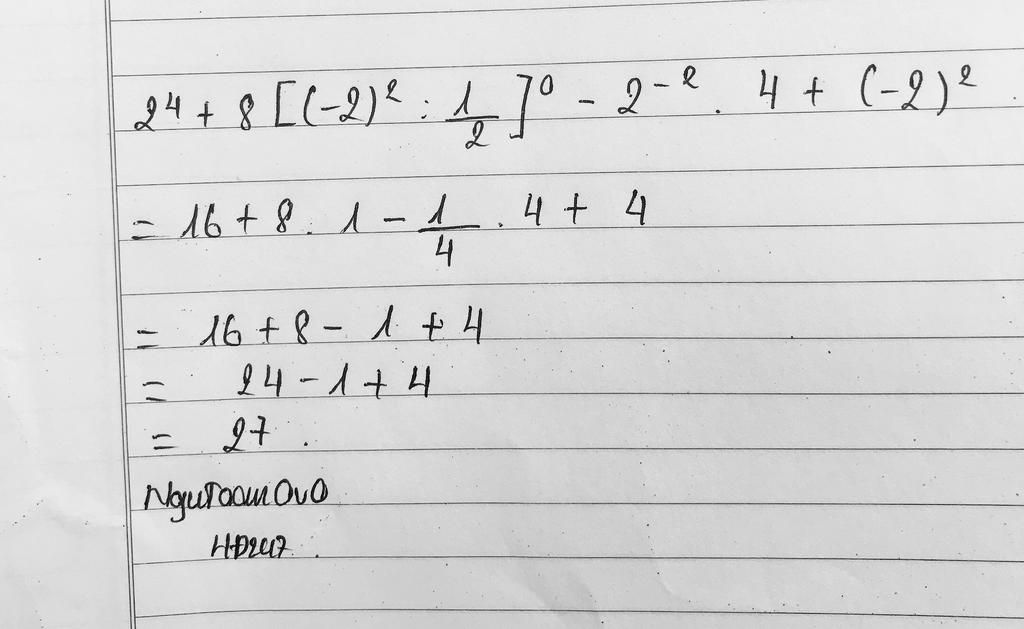 2⁴ + 8 [(-2)² : 1/2]⁰ - 2⁻² . 4 + (-2)²
= 16 + 8 . 1 - 1/4 . 4 + 4
= 16 + 8 - 1 + 4
= 24 - 1 + 4
= 27 .
NguToanOvO
HĐ247 .